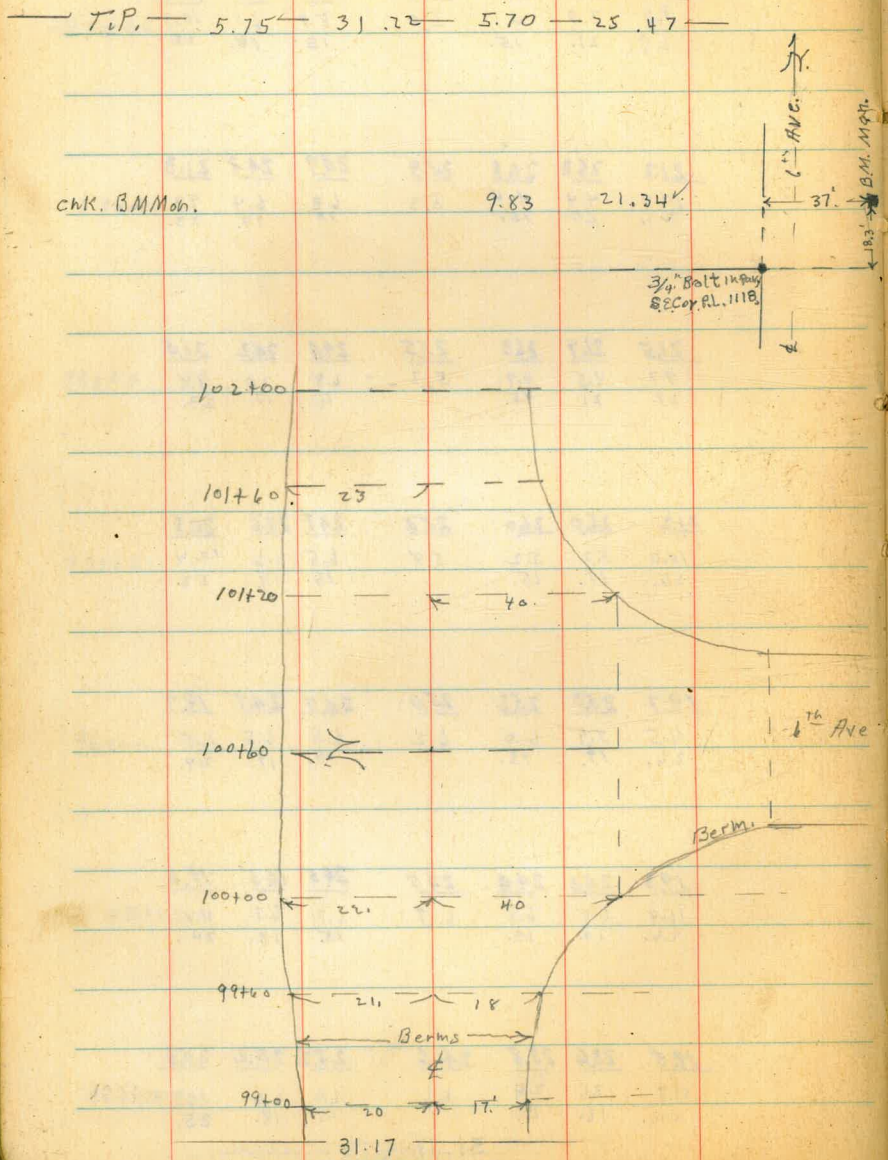 T.P. 5.75 31.22 5.70 25.47
N.
6th AVE.
B.M. Mon.
chk. BM Mon. 9.83 21.34 ✓
37'
18.3'
3/4" Bolt in Pav.
S.E Cor P.L. 1118
¢
102+00
101+60 23
101+20 40
100+60
6th Ave
Berm.
100+00 22 40
99+60 21 18
Berms
¢
99+00 20 17'
31.17